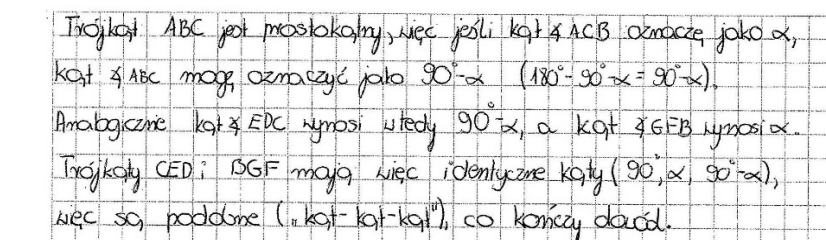 Trójkąt ABC jest prostokątny, więc jeśli kąt ∢ ACB oznaczę jako α,
kąt ∢ ABC mogę oznaczyć jako 90°-α (180°-90°-α = 90°-α).
Analogicznie kąt ∢ EDC wynosi wtedy 90°-α, a kąt ∢ GFB wynosi α.
Trójkąty CED i BGF mają więc identyczne kąty (90°, α, 90°-α),
więc są podobne („kąt-kąt-kąt"), co kończy dowód.